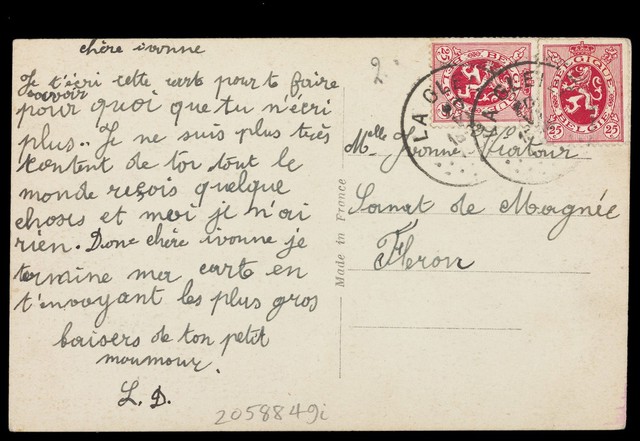 chère ivonne
Je t'écri cette cart pour te faire
savoir
pour quoi que tu n'écri
plus.. Je ne suis plus très
content de toi tout le
monde reçois quelque
choses et moi je n'ai
rien. Donc chère ivonne je
termine ma cart en
t'envoyant les plus gros
baisers de ton petit
moumour.
L. D.
2058849i
2.
Made in France
BELGIQUE
BELGIE
25 25
BELGIQUE
BELGIE
25 25
LA CL
Melle Ivonne
Sanat de Magnée
Fleron